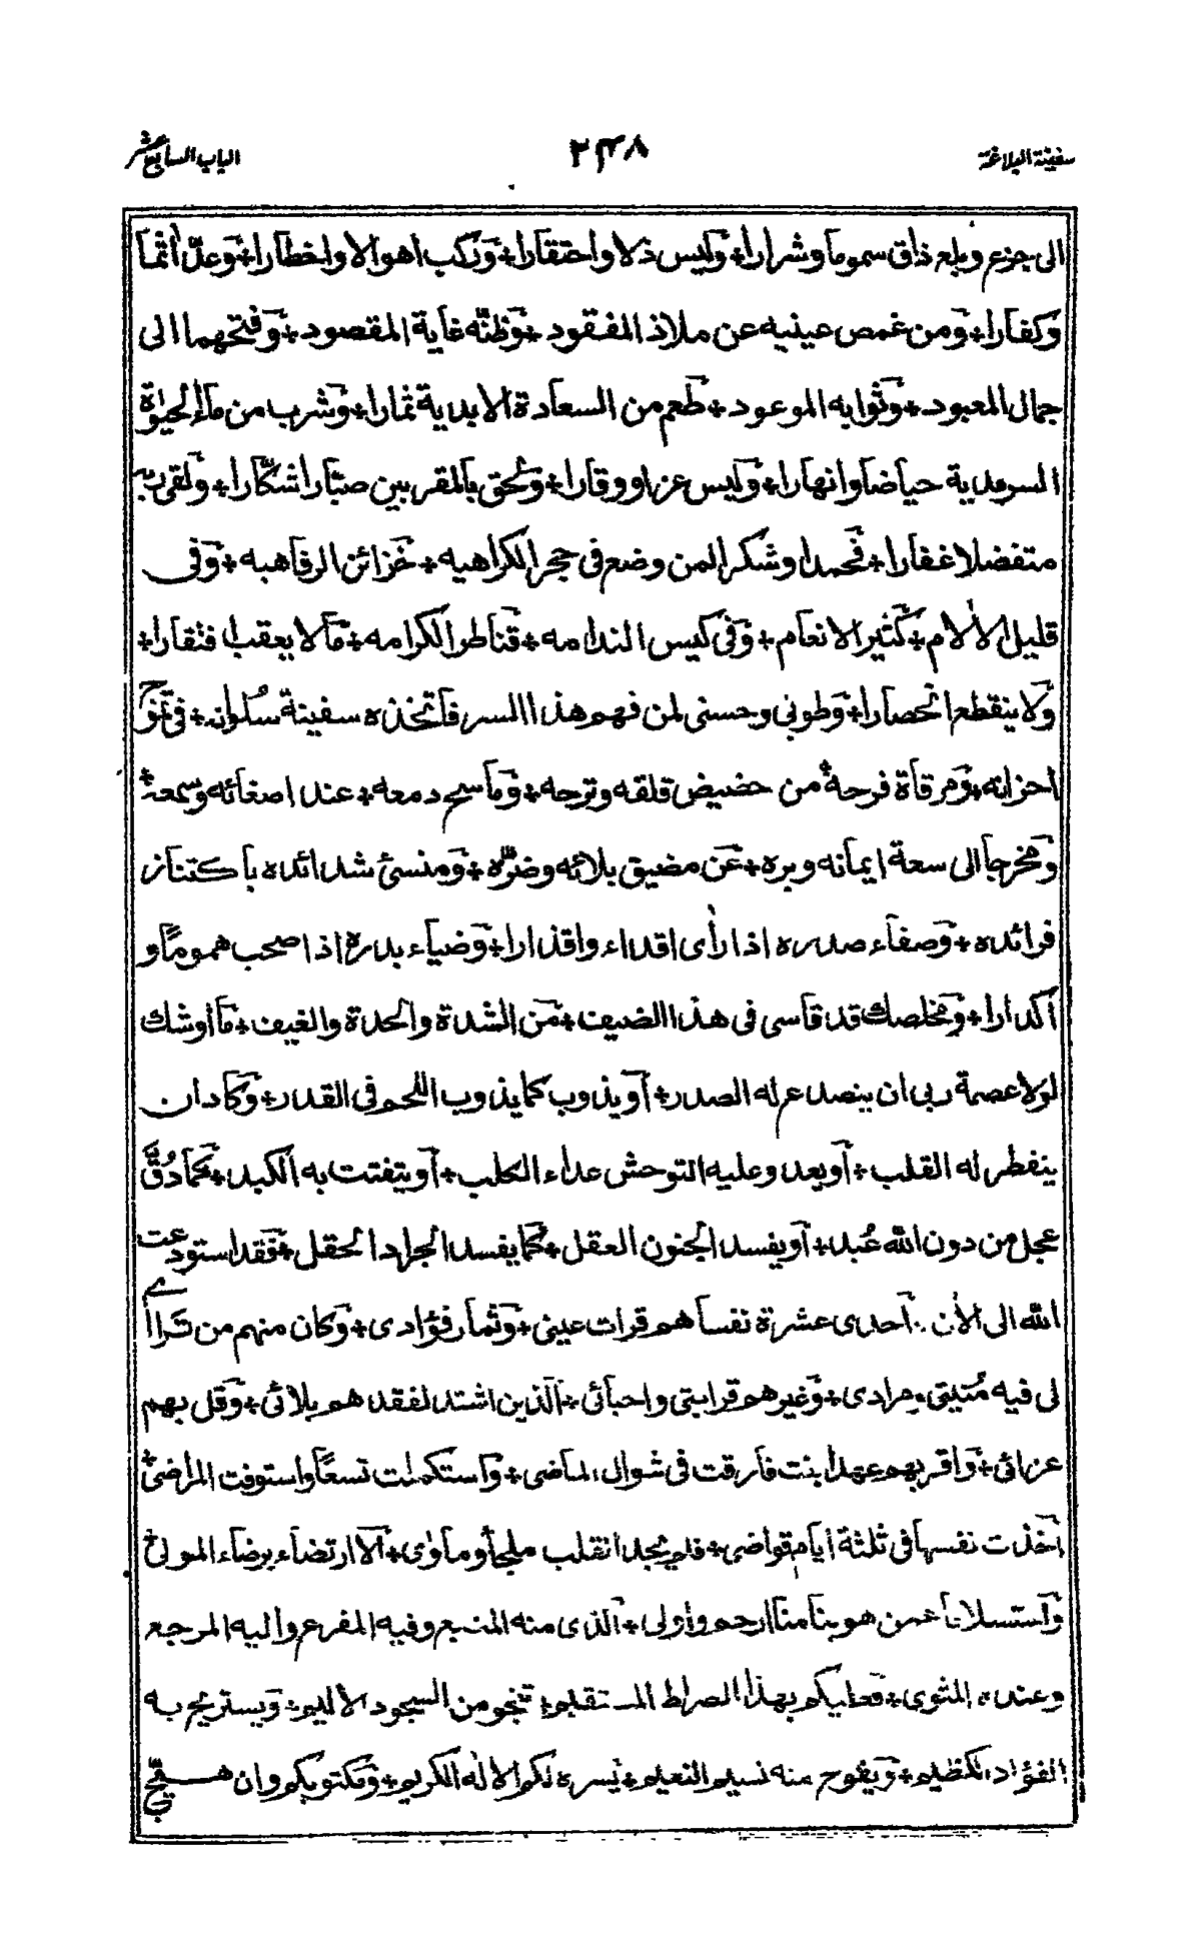 سفينة البلاغة ٢٣٨ الباب السابع عشر
الى جزع وبلع ذاق سموما وشرارا + ولبس ذلا واحتقارا + وركب اهوالا واخطارا + وعدّ اثما
وكفارا + ومن غمص عينيه عن ملاذ المفقود + وظنّه غاية المقصود + وفتحهما الى
جمال المعبود + وثوابه الموعود + طعم من السعادة الابدية ثمارا + وشرب من ماء الحيوة
السرمدية حياضا وانهارا + ولبس عزا ووقارا + ولحق بالمقربين صبّارا شكّارا + ولقى ربه
متفضلا غفارا + فحمدا وشكرا لمن وضع فى حجر الكراهيه + خزائن الرفاهيه + وفى
قليل الألام + كثير الانعام + وفى كيس الندامه + قناطر الكرامه + مالا يعقب افتقارا +
ولا ينقطع انحصارا + وطوبى وحسنى لمن فهم هذا السر فاتخذه سفينة سُلوانه + فى تموّج
احزانه + ومرقاة فرحة من حضيض قلقه وترحه + وماسح دمعه + عند اصغائه وسمعه +
ومخرجا الى سعة ايمانه وبره + عن مضيق بلائه وضرّه + ومنسئ شدائده باكتناز
فرائده + وصفاء صدره اذا رأى اقداء واقذارا + وضياء بدره اذا صحب هموماً و
أكدارا + ومخلصك قد قاسى فى هذا الضيف + من الشدة والحدة والغيف + ما اوشك
لولا عصمة ربى ان ينصدع له الصدر + او يذوب كما يذوب اللحم فى القدر + وكاد ان
ينفطر له القلب + او يعدو عليه التوحش عداء الكلب + او يتفتت به الكبد + كما دُقَّ
عجل من دون الله عُبد + او يفسد الجنون العقل + كما يفسد الجراد الحقل + فقد استودعت
الله الى الأن احدى عشرة نفسا هم قرات عينى + وثمار فؤادى + وكان منهم من تَراأى
لى فيه مُنيتى ومرادى + وغيرهم قرابتى واحبائى + الذين اشتد لفقدهم بلائى + وقل بهم
عزائى + واقربهم عهدا بنت فارقت فى شوال الماضى + واستكملت تسعاً واستوفت المراضى +
اخذت نفسها فى ثلثة ايام قواضى + فلم يجد القلب ملجأ وماوٰى + الا ارتضاء برضاء المولىٰ
واستسلاما لمن هو بنا منا ارحم واولى + الذى منه المنبع وفيه المفزع واليه المرجع
وعنده المثوى + فعليكم بهذا الصراط المستقيم + تنجو من السجود الاليم + ويستريح به
الفؤاد الكظيم + ويفوح منه نسيم النعيم + يسره لكم الاله الكريم + ومكتوبكم وان هيّج